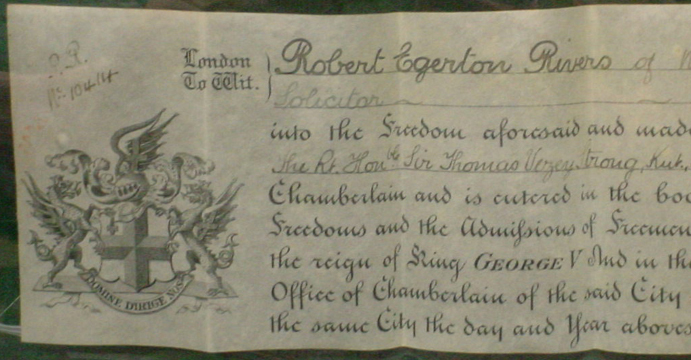 London
To Wit.
Robert Egerton Rivers of
Solicitor
into the Freedom aforesaid and made
the Rt. Honble Sir Thomas Vezey Strong, Knt.,
Chamberlain and is entered in the boo
Freedoms and the Admissions of Freemen
the reign of King GEORGE V And in the
Office of Chamberlain of the said City
the same City the day and Year aboves
DOMINE DIRIGE NOS